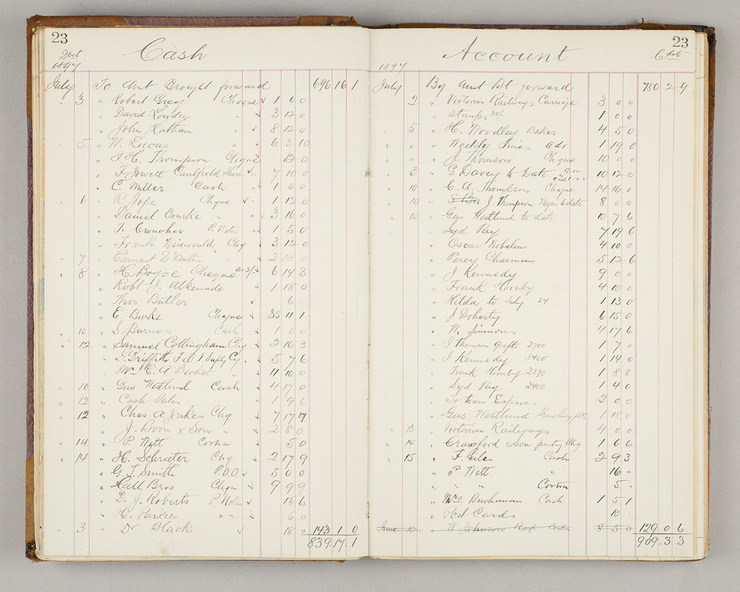 23
Cash
1897
July To Amt Brought forward 696 16 1
3 " Robert Grey Cheque 1 0 0
" David Lowdey 3 12 0
" John Latham " 8 12 0
5 " W. Lucas " 6 3 10
" Thompson Cheque 12 0
" F. Jowett Caulfield 7 10 0
" C Miller Cash 1 0 0
6 " R. Jope Cheque 1 12 0
" Daniel Bourke " 3 16 0
" P. Note 1 5 0
" Frank Chq 3 12 0
7 " Ernest
8 " Cheque 6 14 3
" Robt J. Alkemade 1 18 0
" Thos Butler 6
" E. Burke Cheque 35 11 1
10 " S. Burness Cash 1 0 0
12 " Samuel Cottingham Chq 2 16 3
" Griffiths 5 7 6
" Mrs E. A 11 10 0
10 " Gus Westlund Cash 4 17 0
12 " Cash Sales 1 9 6
12 " Chas A Jukes Chq 7 17 7
" J. Boon & Son "
14 " P. Witt 5 0
14 " H. Schreeter Chq 2 17 9
" G. T. Smith P.O.O. 5 0 0
" Hall Bros Chqn 9 9 9
" D. J. Roberts P Note 15 6
" H. Parker " " 6 0
3 " Dr Black " 18 0 143 1 0
839.17.1
23
Account
1897
July By Amt forward 780 2 9
2 " Victorian Railways Carriage 3 0 0
" Stamps 1 0 0
5 " H. Woodley Baker 4 5 0
" Weekly Times Adv 1 19 0
" J. Thomson Cheque 10 0 0
3 " G Davey to Date 10 12 0
10 " C. A. Thompson Cheque 14 16 0
10 " J Thompson 8 0 0
10 " Gus Westlund to date 10 7 6
" Syd Kay 7 19 6
" Oscar 4 10 0
" Percy Chairman 5 12 6
" J Kennedy 9 0 0
" Frank Hornby 4 10 0
" Hilda to July 24 1 13 0
" J Doherty 6 15 0
" W. Simmons 4 17 6
" J Thomson Graft 2700 1 7
" J Kennedy 3400 1 14 0
" Frank Hornby 2870 1 8 8
" Syd Kay 2400 1 4 0
" To tram Expenses 2 0 0
" Gus Westlund
13 " Victorian Railways 4 0 0
14 " Crawford & son Chq 1 6 6
15 " F. Giles Cash 2 9 3
" P Witt " 16 -
" " " 5 -
" Mrs Buchanan Cash 1 5 1
" Post Cards 10 -
June W Johnson 8 5 0 129 0 6
909.3.3